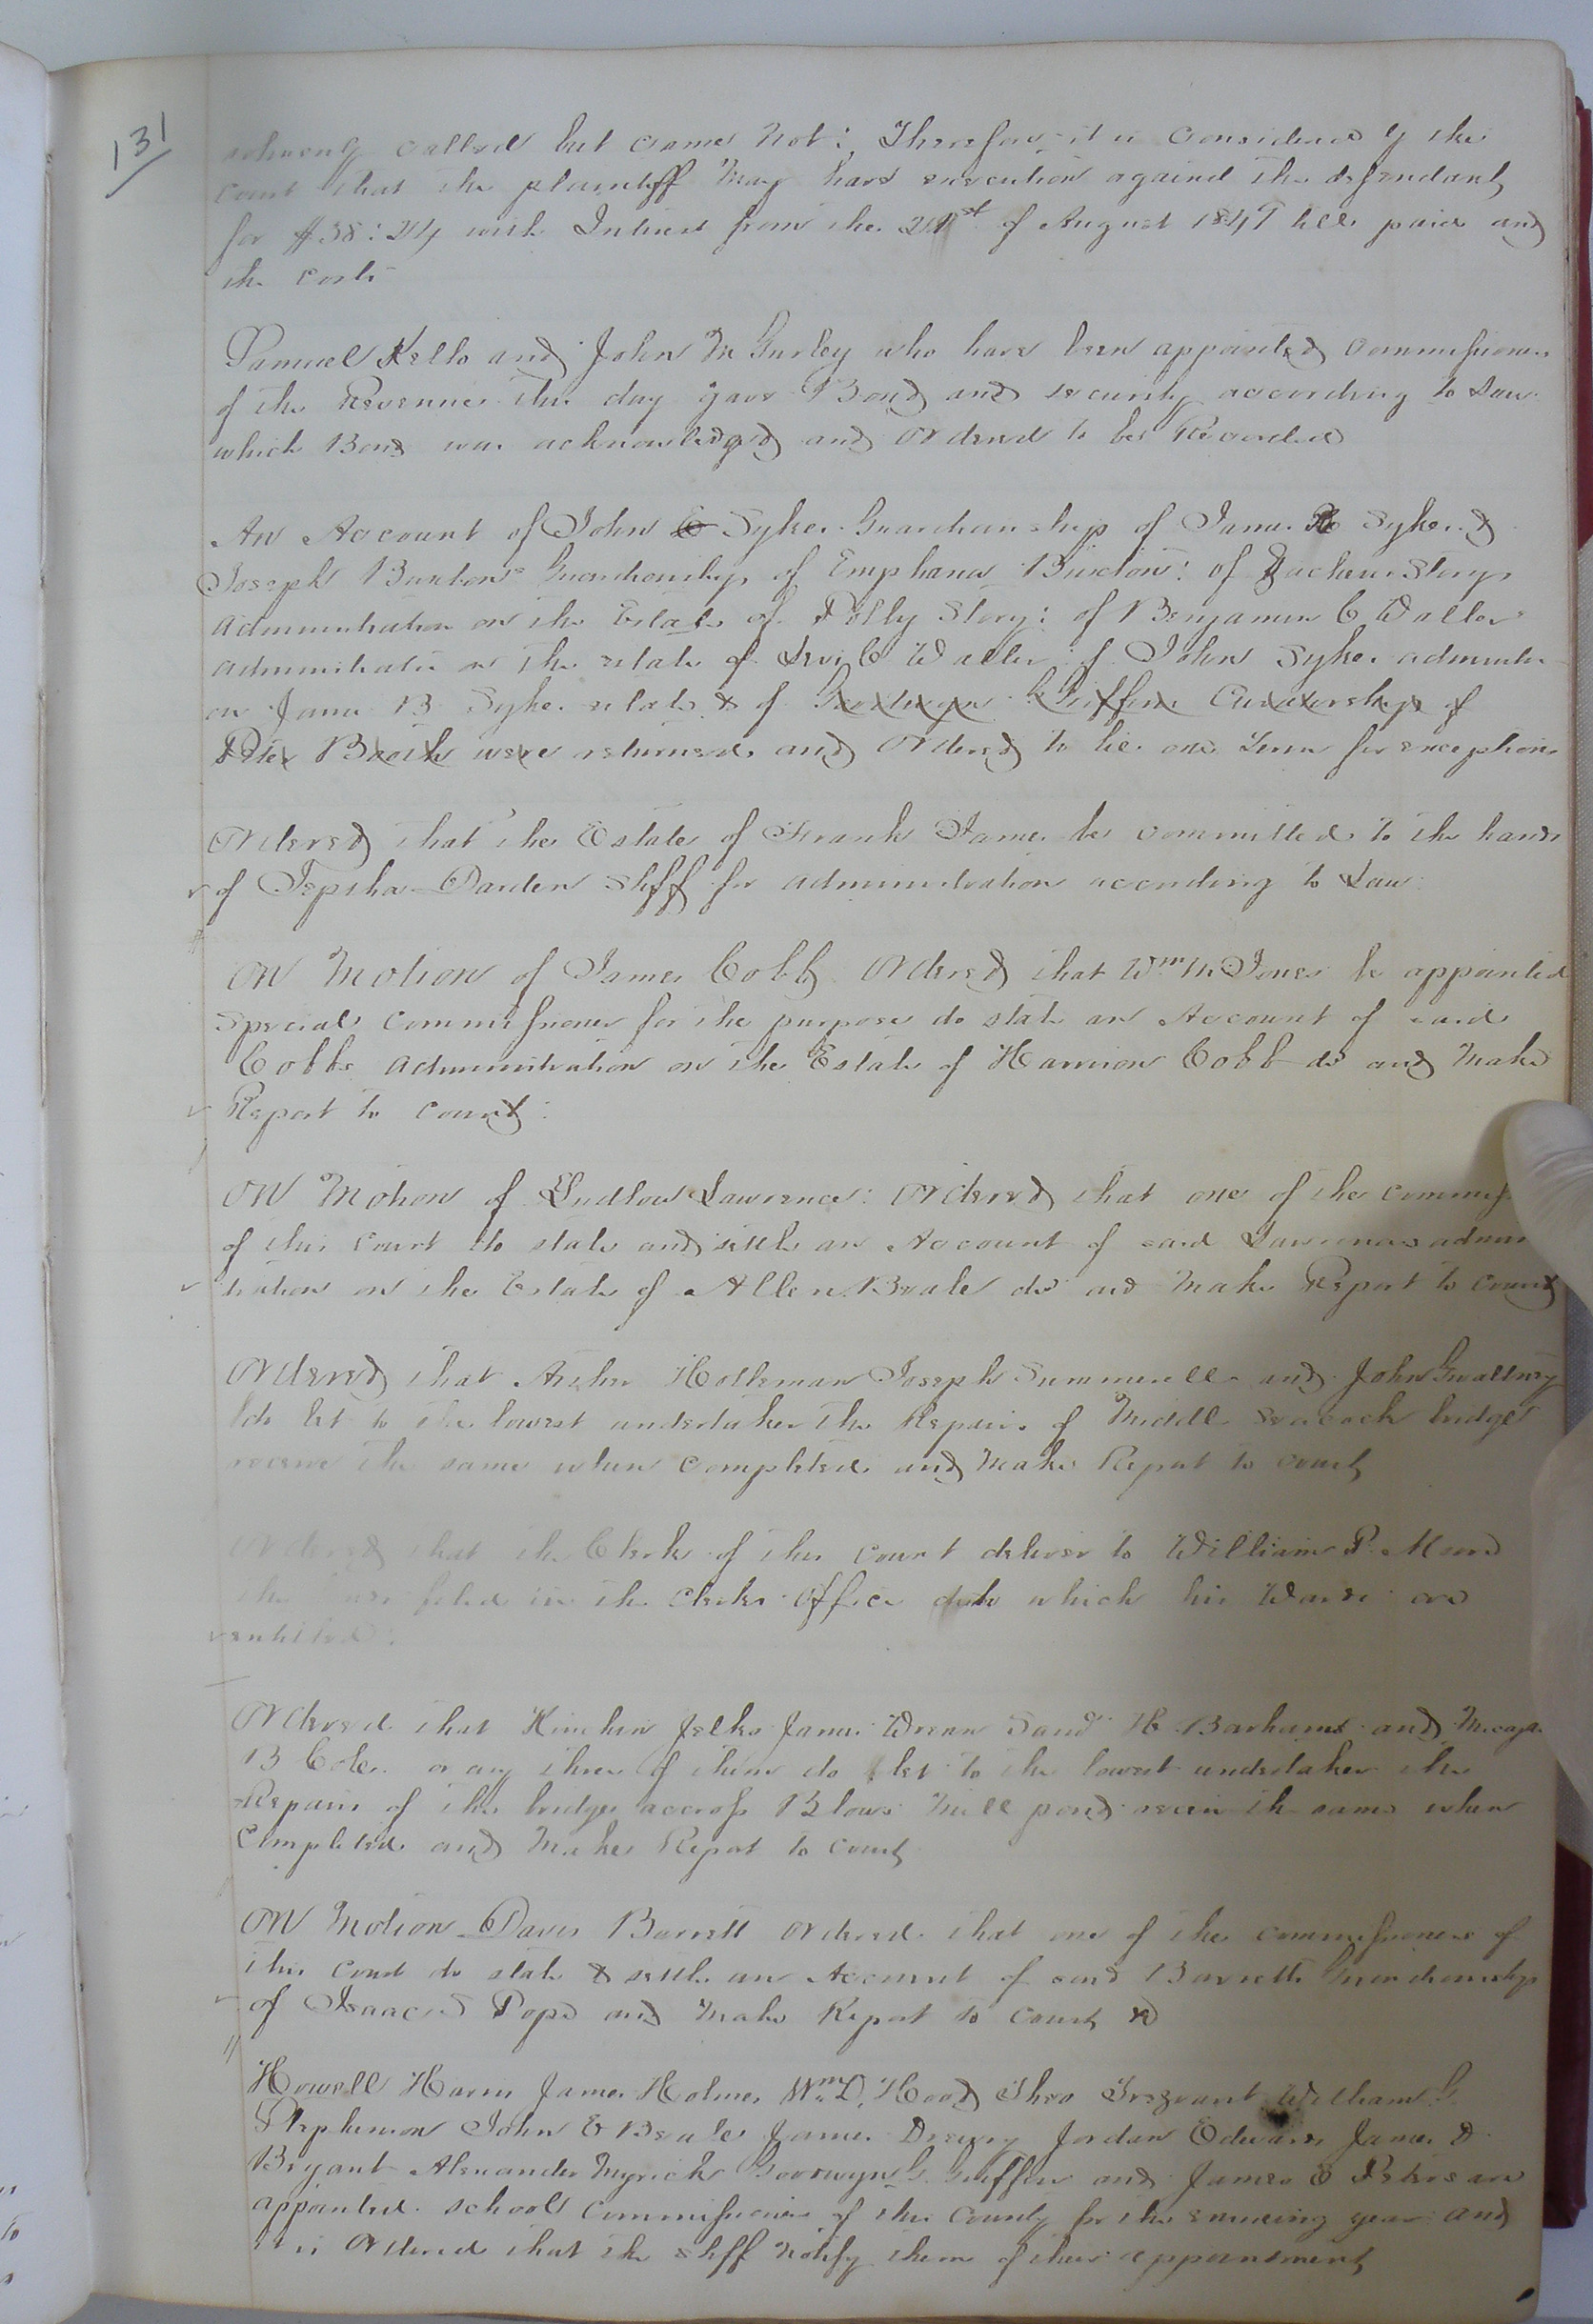 131
solemnly called but came not: Therefore it is considered by the
court that the plaintiff may have execution against the defendant
for $38:24 with Interest from the 21st of August 1849 till paid and
the costs
Samuel Kello and John M Gurley who have been appointed commissioners
of the Revenue this day gave Bond and security according to Law
which Bond was acknowledged and ordered to be Recorded
An Account of John Sykes Guardianship of James R Sykes &
Joseph Buxtons Guardianship of Buxton: of Story
administration on the Estate of Polly Story: of Benjamin C Waller
administration on the estate of Levi C Waller of John Sykes adminstn
on James B Sykes estate & of Goodwyn Griffin Curatorship of
Peter Booth were returned and ordered to lie one Term for exceptions
Ordered that the Estate of Frank James be committed to the hands
of Jepthа Darden Shff for administration according to Law
On Motion of James Cobb Ordered that Wm M Jones be appointed
special commissioner for the purpose do state an Account of said
Cobbs administration on the Estate of Harrison Cobb do and make
Report to court:
On Motion of Ludlow Lawrence: Ordered that one of the commiss
of this court do state and settle an Account of said Lawrences admin
tration on the Estate of Allen Beale do and make Report to court
Ordered that Holleman Joseph Summerell and John Gwaltney
do let to the lowest undertaker the Repairs of Middle Seacock bridge
receive the same when completed and make Report to court
Ordered that the Clerk of this court deliver to William P. Moore
the filed in the clerks office which his Wards are
entitled:
Ordered that Kinchin Jelks James Wrenn Saml H Barham and
B Cole or any three of them do let to the lowest undertaker the
Repairs of the bridge accross Blows Mill pond receive the same when
Completed and make Report to court
On Motion Davis Barrett ordered that one of the commissioners of
this court do state & settle an Account of said Barretts Guardianship
of Isaac Pope and make Report to court &
Howell Harris James Holmes Wm D. Hood Theo Trezvant William G.
Stephenson John E Beale James Drewry Jordan Edwards James D
Bryant Alexander Myrick Goodwyn G. Griffin and James E Peters are
appointed school commissioners of this County for the ensuing year and
it is Ordered that the shff notify them of their appointment